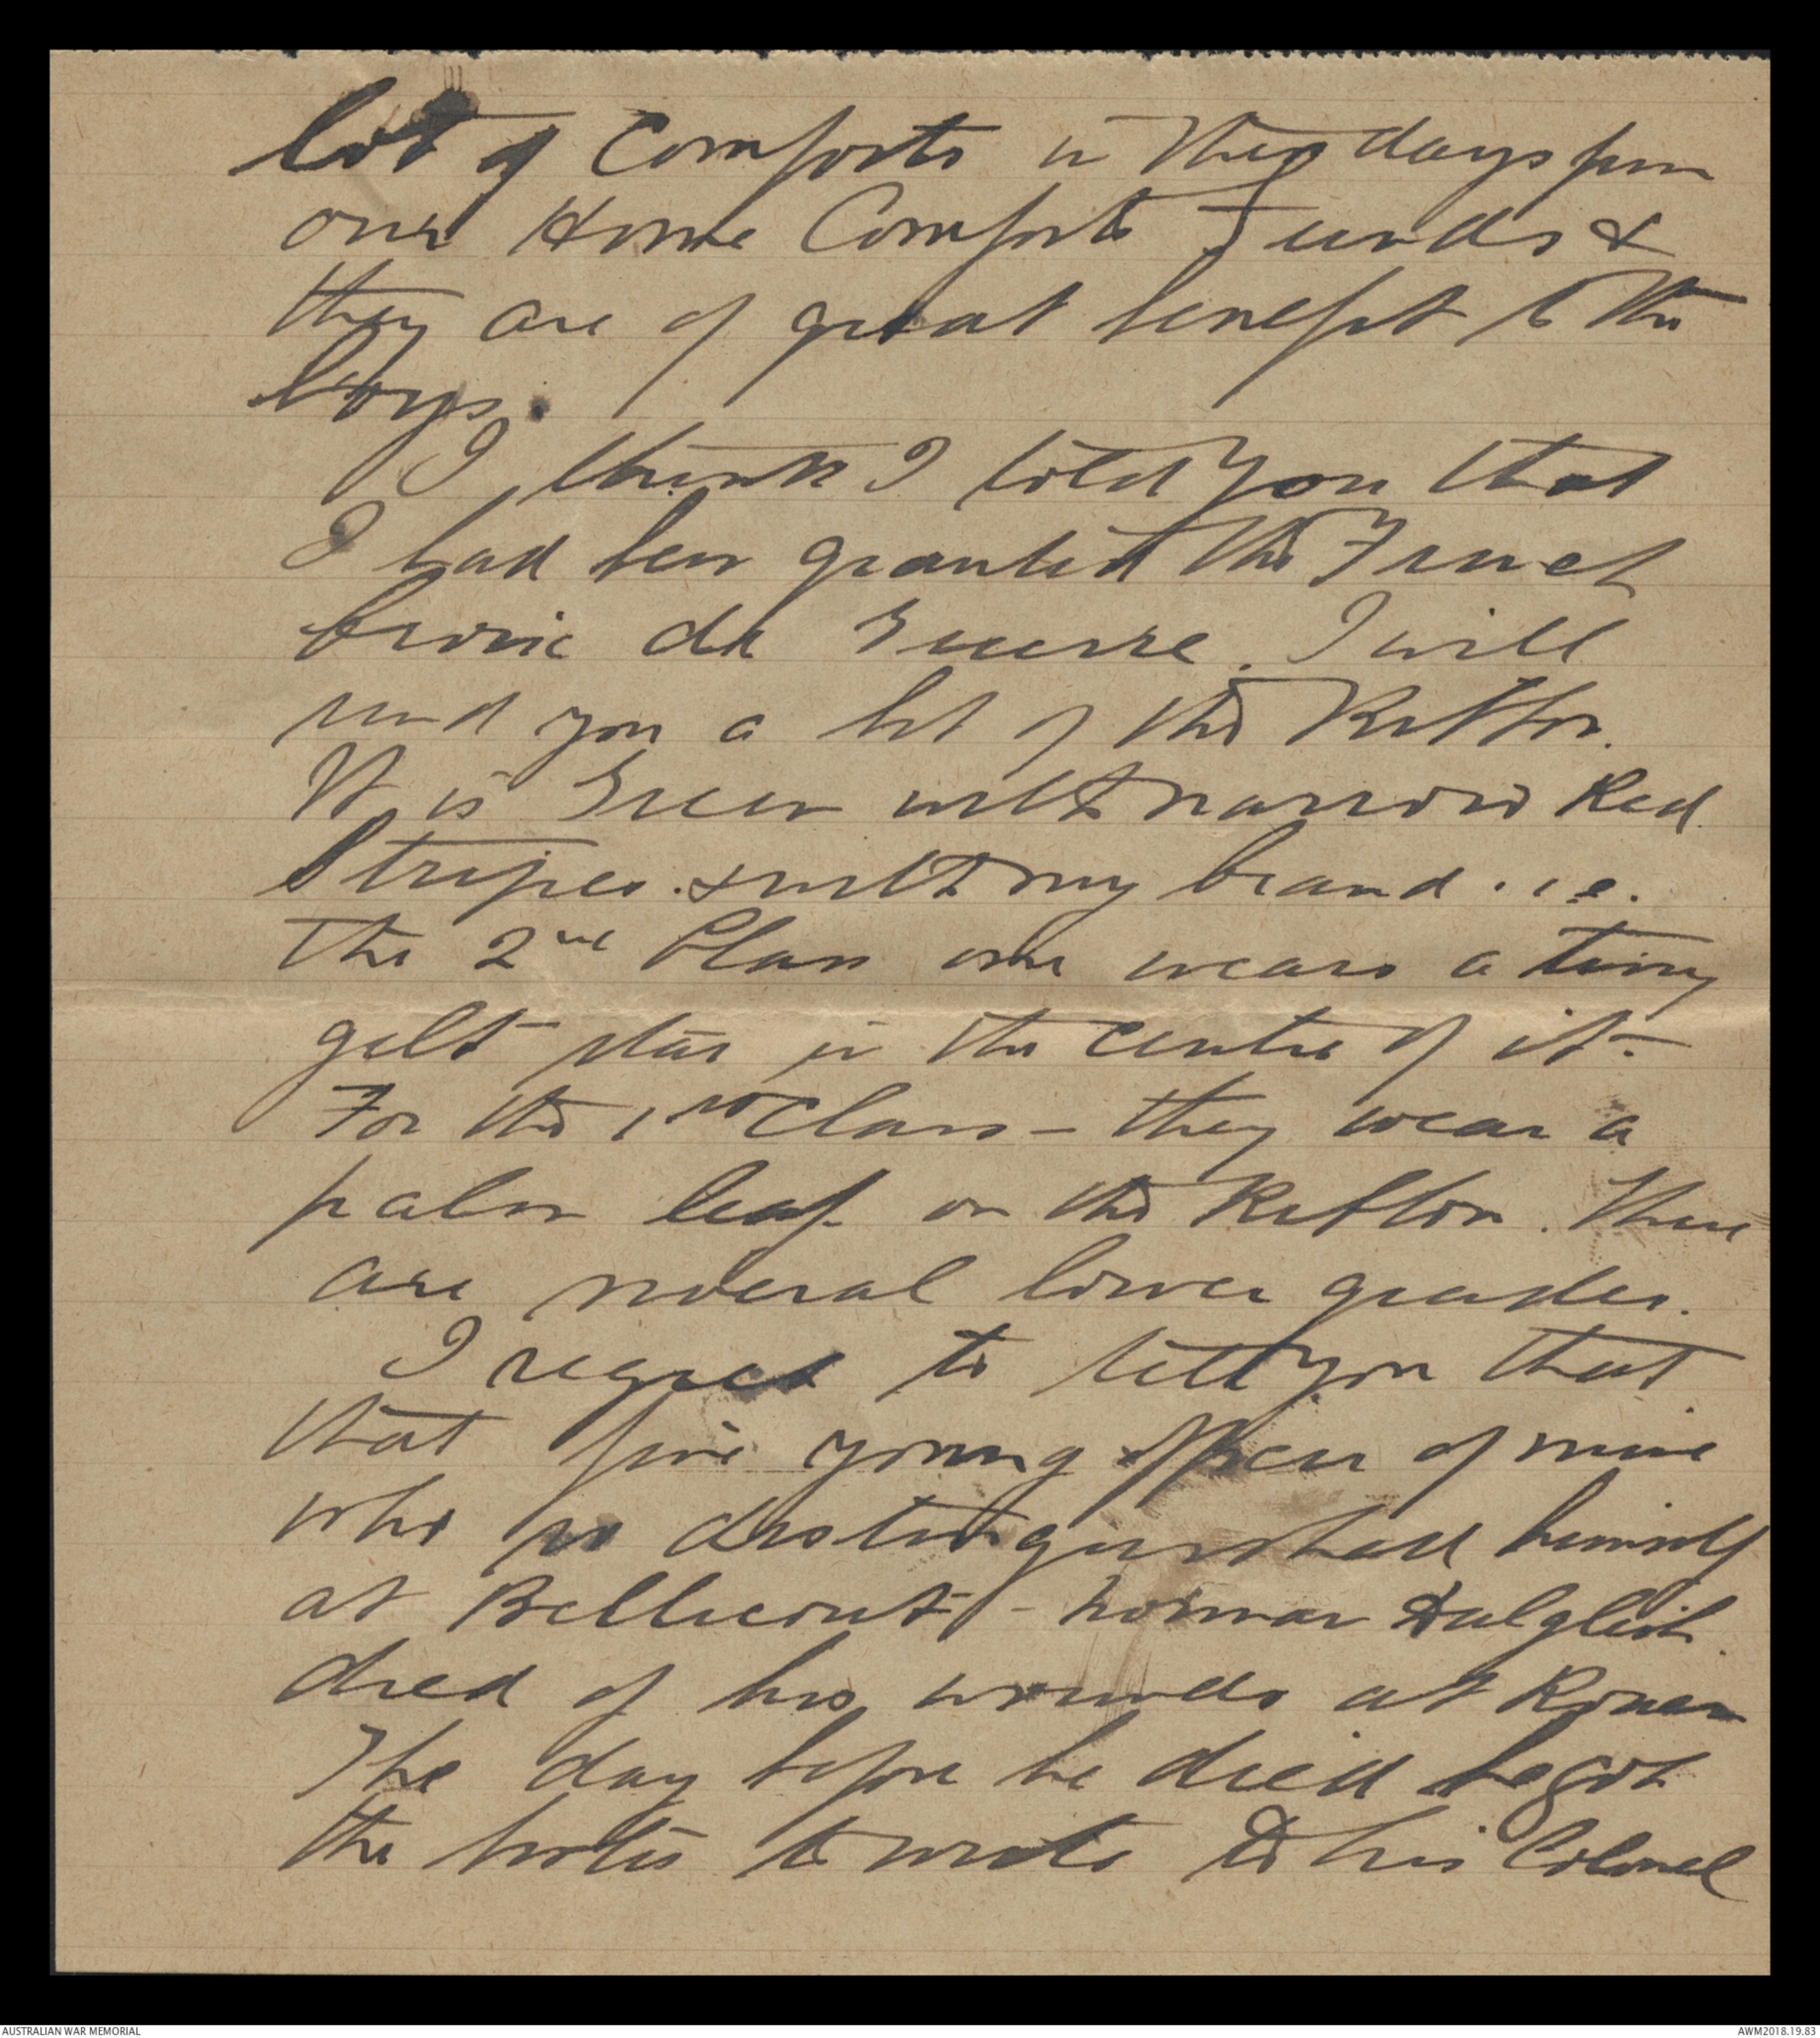 lot of Comforts in these days from
our Home Comforts Funds &
they are of great benefit to the
boys.
I think I told you that
I had been granted the French
Croix de Guerre. I will
send you a bit of the Ribbon.
It is Green with narrow Red
Stripes. & with my brand. i.e.
the 2nd Class one wears a tiny
gilt star in the centre of it-
For the 1st Class - they wear a
palm leaf on the Ribbon. There
are several lower grades.
I regret to tell you that
that fine young officer of mine
who so distinguished himself
at Bellicourt - Norman Dalgleish
died of his wounds at Rouen
The day before he died he got
the to write to his Colonel
AUSTRALIAN WAR MEMORIAL
AWM2018.19.83